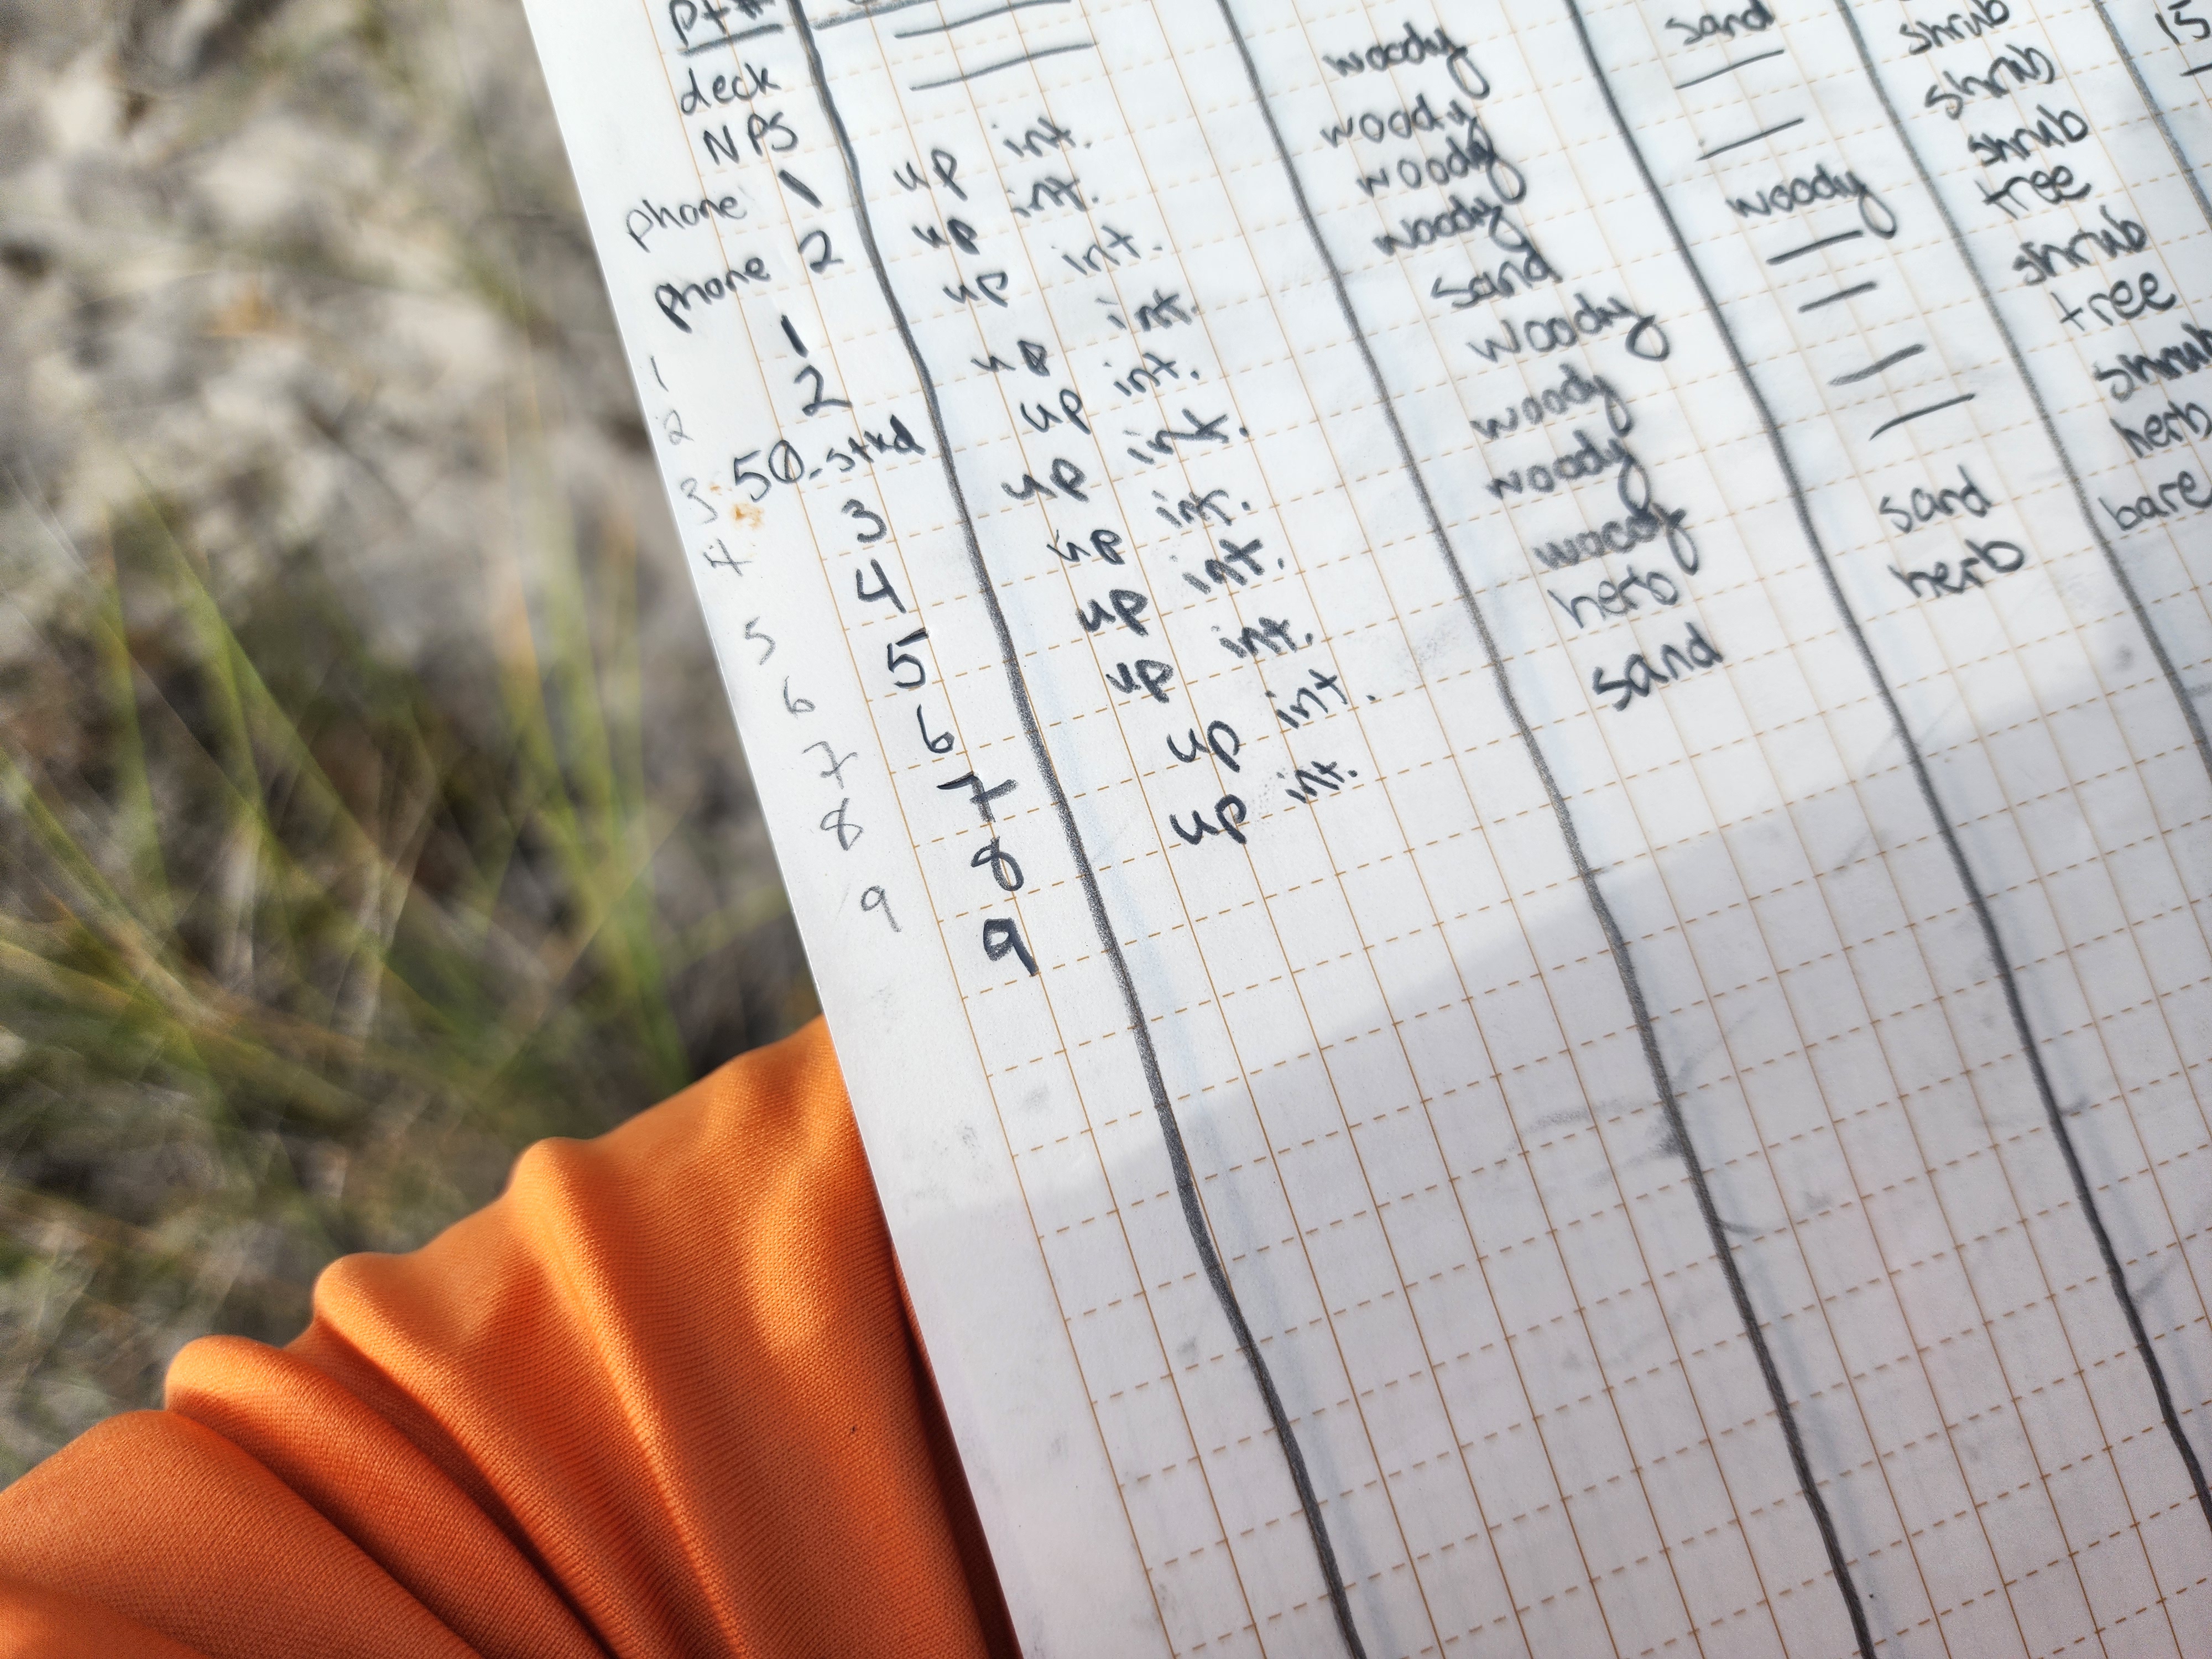 Pt#
deck — 
NPS —
phone 1 up int. woody
phone 2 up int. woody sand
1 1 up int. woody — shrub
2 2 up int. woody — shrub 15
3 50-stkd up int. sand woody shrub —
4 3 up int. woody — tree
5 4 up int. woody — shrub
6 5 up int. woody — tree
7 6 up int. woody — shrub
8 7 up int. herb sand herb
9 8 up int. sand herb bare
9